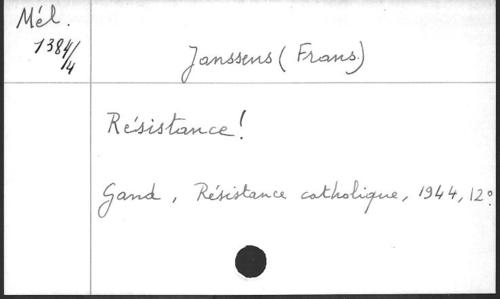 Mél.
1384/
14
Janssens (Frans)
Résistance!
Gand, Résistance catholique, 1944, 12°.